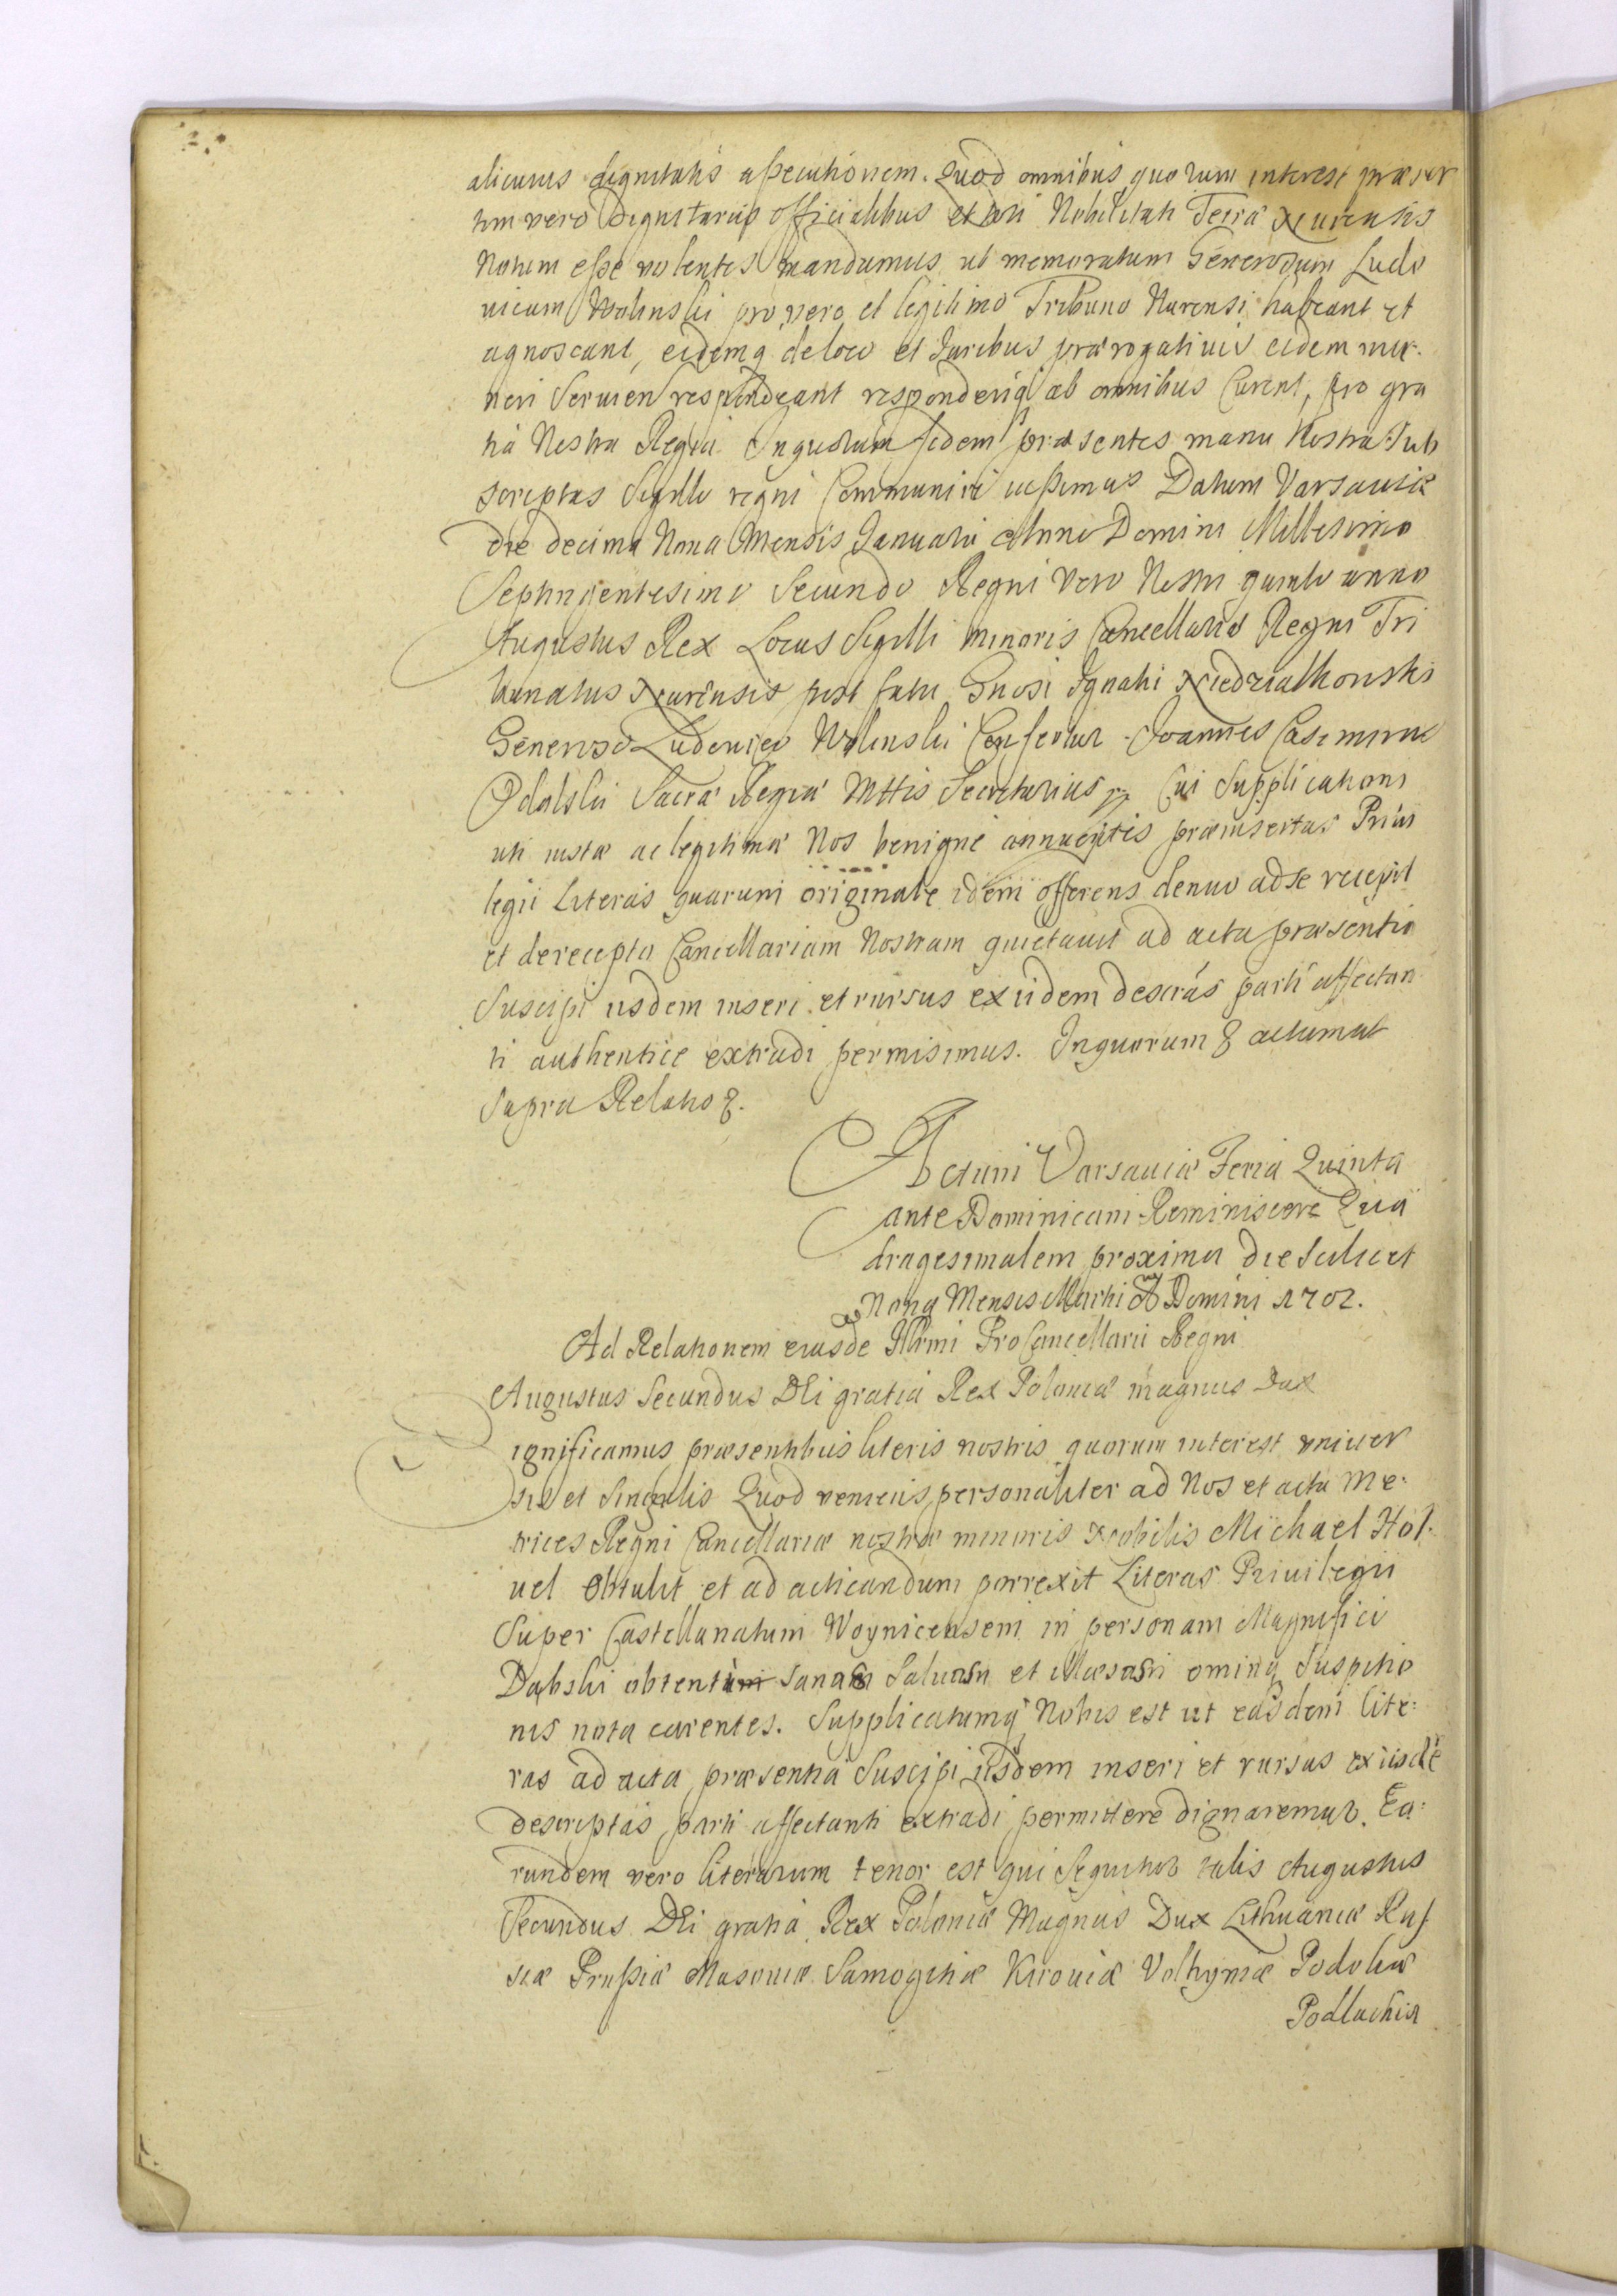 alicuius dignitatis assecutionem. Quod omnibus quorum interest præser
tim vero Dignitariis officialibus et toti Nobilitati Terræ Nurensis
Notum esse volentes mandamus ut memoratum Generosum Ludo
vicum Wolinski pro vero et legitimo Tribuno Nurensi habeant et
agnoscant, eidemq de loco et Juribus prærogativis eidem mu-
neri Servien respondeant responderiq ab omnibus Curent, pro gra
tia Nostra Regia Inquorum fidem præsentes manu Nostra Sub
scriptas Sigillo regni Communiri iussimus Datum Varsaviæ
die decima Nona Mensis Januarii Anno Domini Millesimo
Septingentesimo Secundo Regni Vero Nostri quinto anno
Augustus Rex Locus Sigilli minoris Cancellariæ Regni Tri
bunatus Nurensis post fata Gnosi Ignatii Niedzialkowski
Generoso Ludovico Wolinski Confertur Joannes Casimirus
Sacræ Regiæ Mttis Secretarius Cui Supplicationi
uti iustæ ac legitimæ Nos benigne annuentes præinsertas Privi
legii Literas quarum originale idem offerens denuo ad se recepit
et de recepto Cancellariam Nostram quietavit ad acta præsentia
Suscipi iisdem inseri et rursus ex iidem descrás parti affectan
ti authentice extradi permisimus. Inquorum & actum ut
Supra Relatio &.
Actum Varsaviæ Feria Quinta
ante Dominicam Reminiscere Qua
dragesimalem proxima die Scilicet
Nona Mensis Martii A Domini 1702.
Ad Relationem eiusde Illrmi ProCancellarii Regni
Augustus Secundus DEi gratia Rex Poloniæ magnus Dux
Significamus præsentibus literis nostris quorum interest univer
sis et Singulis Quod veniens personaliter ad Nos et acta Me-
trices Regni Cancellariæ nostræ minoris Nobilis Michael Hol-
vel Obtulit et ad acticandum porrexit Literas Privilegii
Super Castellanatum Woynicensem in personam Magnifici
Dabski obtent sanas Salvas et illæsas omniq Suspitio
nis nota carentes. Supplicatumq Nobis est ut easdem lite-
ras ad acta præsentia Suscipi iisdem inseri et rursus ex iisdē
descriptas parti affectanti extradi permittere dignaremur. Ea-
rundem vero literarum tenor est qui Sequitur talis Augustus
Secundus DEi gratia Rex Poloniæ Magnus Dux Lithuaniæ Rus
siæ Prussiæ Masoviæ Samogitiæ Kijoviæ Volhyniæ Podoliæ
Podlachiæ